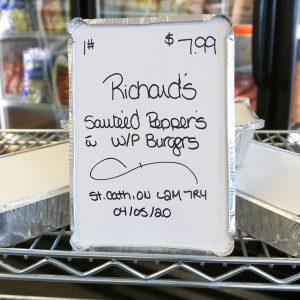 1# $7.99
Richard's
Sauteéd Pepper's
w/P Burgers
St. Cath, ON L2M 7R4
04/05/20